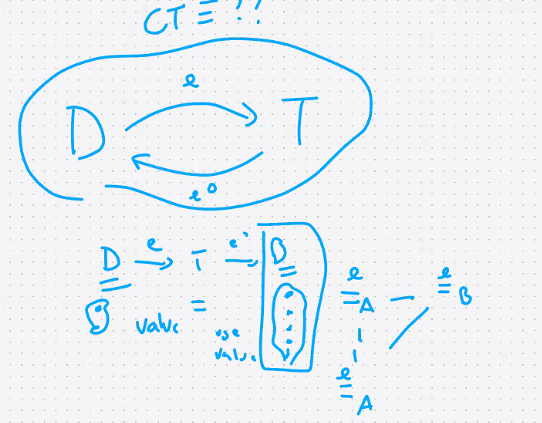 CT ≡ ??
e
D T
e°
D e→ T e'→ D
value = use value
e ≡ A e ≡ B
e ≡ A